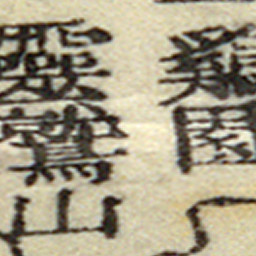 鷄園
靈鷲山